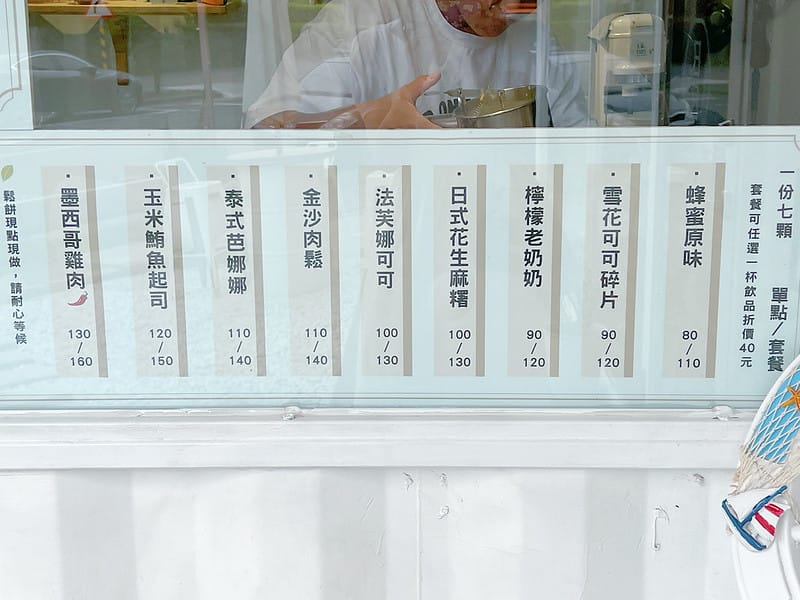 一份七顆　單點／套餐
套餐可任選一杯飲品折價40元
蜂蜜原味 80/110
雪花可可碎片 90/120
檸檬老奶奶 90/120
日式花生麻糬 100/130
法芙娜可可 100/130
金沙肉鬆 110/140
泰式芭娜娜 110/140
玉米鮪魚起司 120/150
墨西哥雞肉 130/160
鬆餅現點現做，請耐心等候